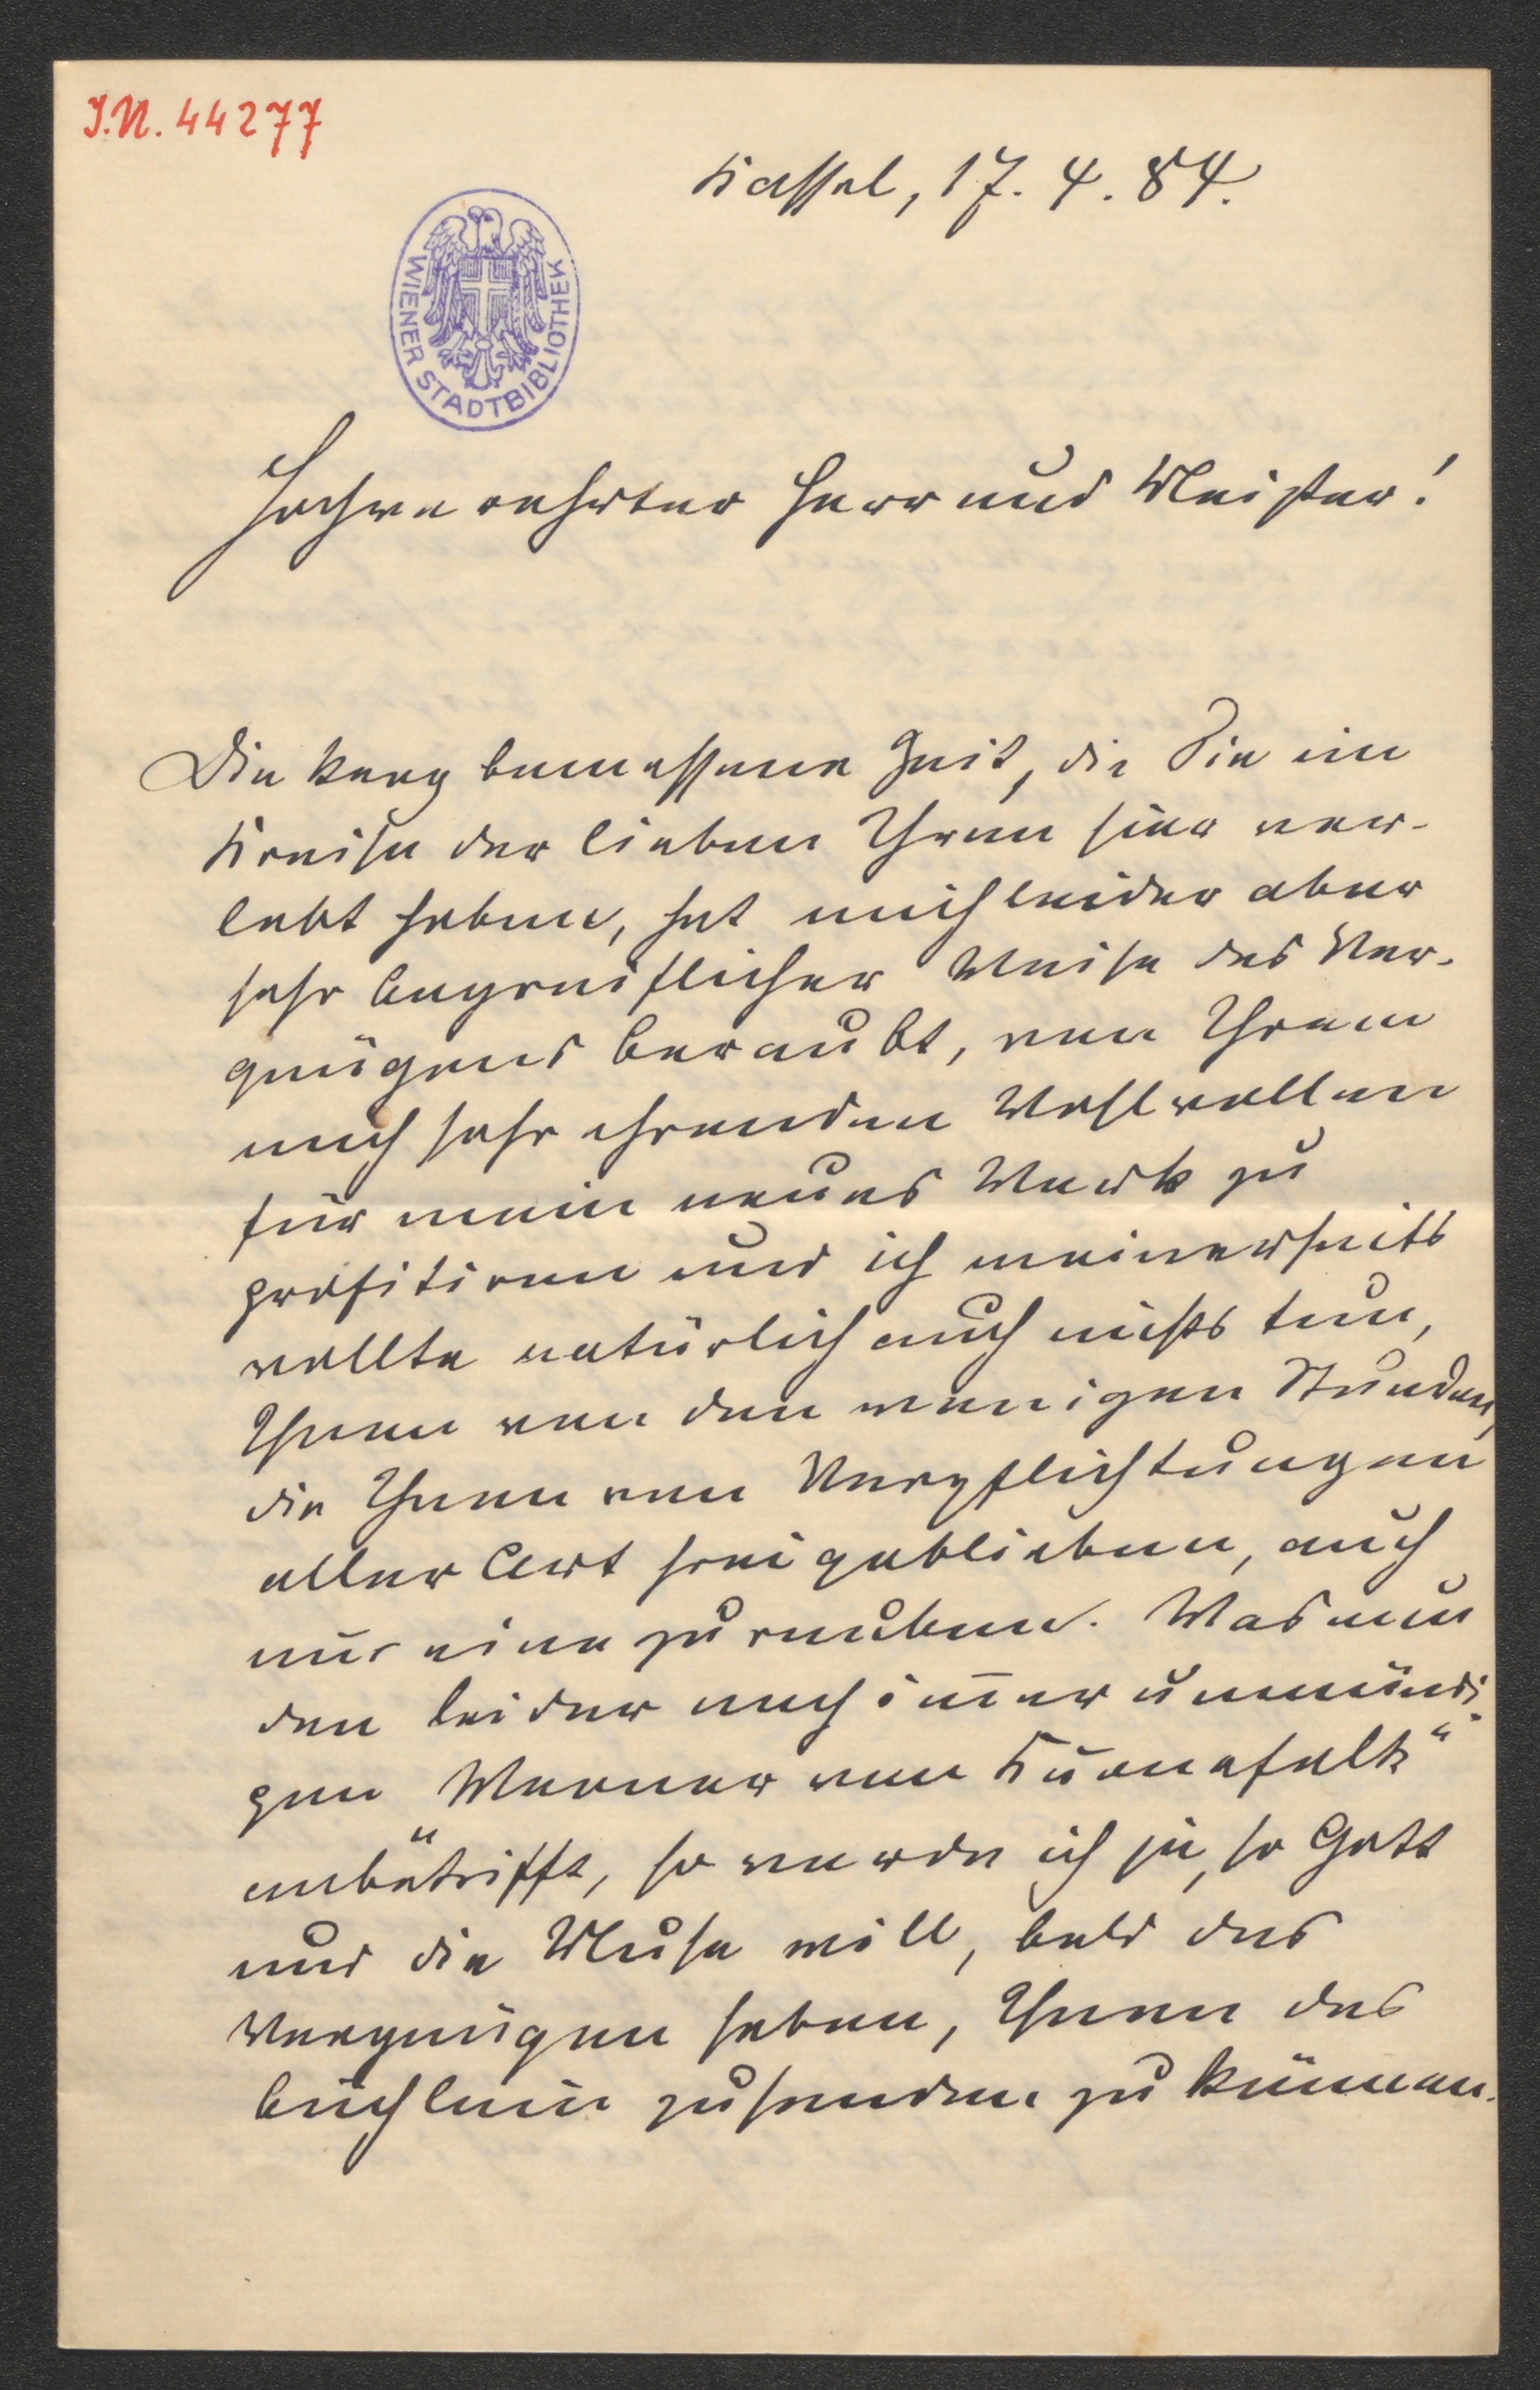 I.N. 44277
Kassel, 17. 4. 84.
WIENER STADTBIBLIOTHEK
Hochverehrter Herr und Meister!
Die karg bemessene Zeit, die Sie im
Kreise der lieben Ihren hier ver-
lebt haben, hat mich leider aber
sehr begreiflicher Weise des Ver-
gnügens beraubt, von Ihrem
mich sehr ehrenden Wohlwollen
für mein neues Werk zu
profitiren und ich meinerseits
wollte natürlich auch nichts tun,
Ihnen von den wenigen Stunden,
die Ihnen von Verpflichtungen
aller Art frei geblieben, auch
nur eine zu rauben. Was nun
den leider noch im̅er unmündi-
gen „Werner von Kuonefalk“
anbetrifft, so werde ich ja, so Gott
und die Muse will, bald das
Vergnügen haben, Ihnen das
Büchlein zusenden zu können.